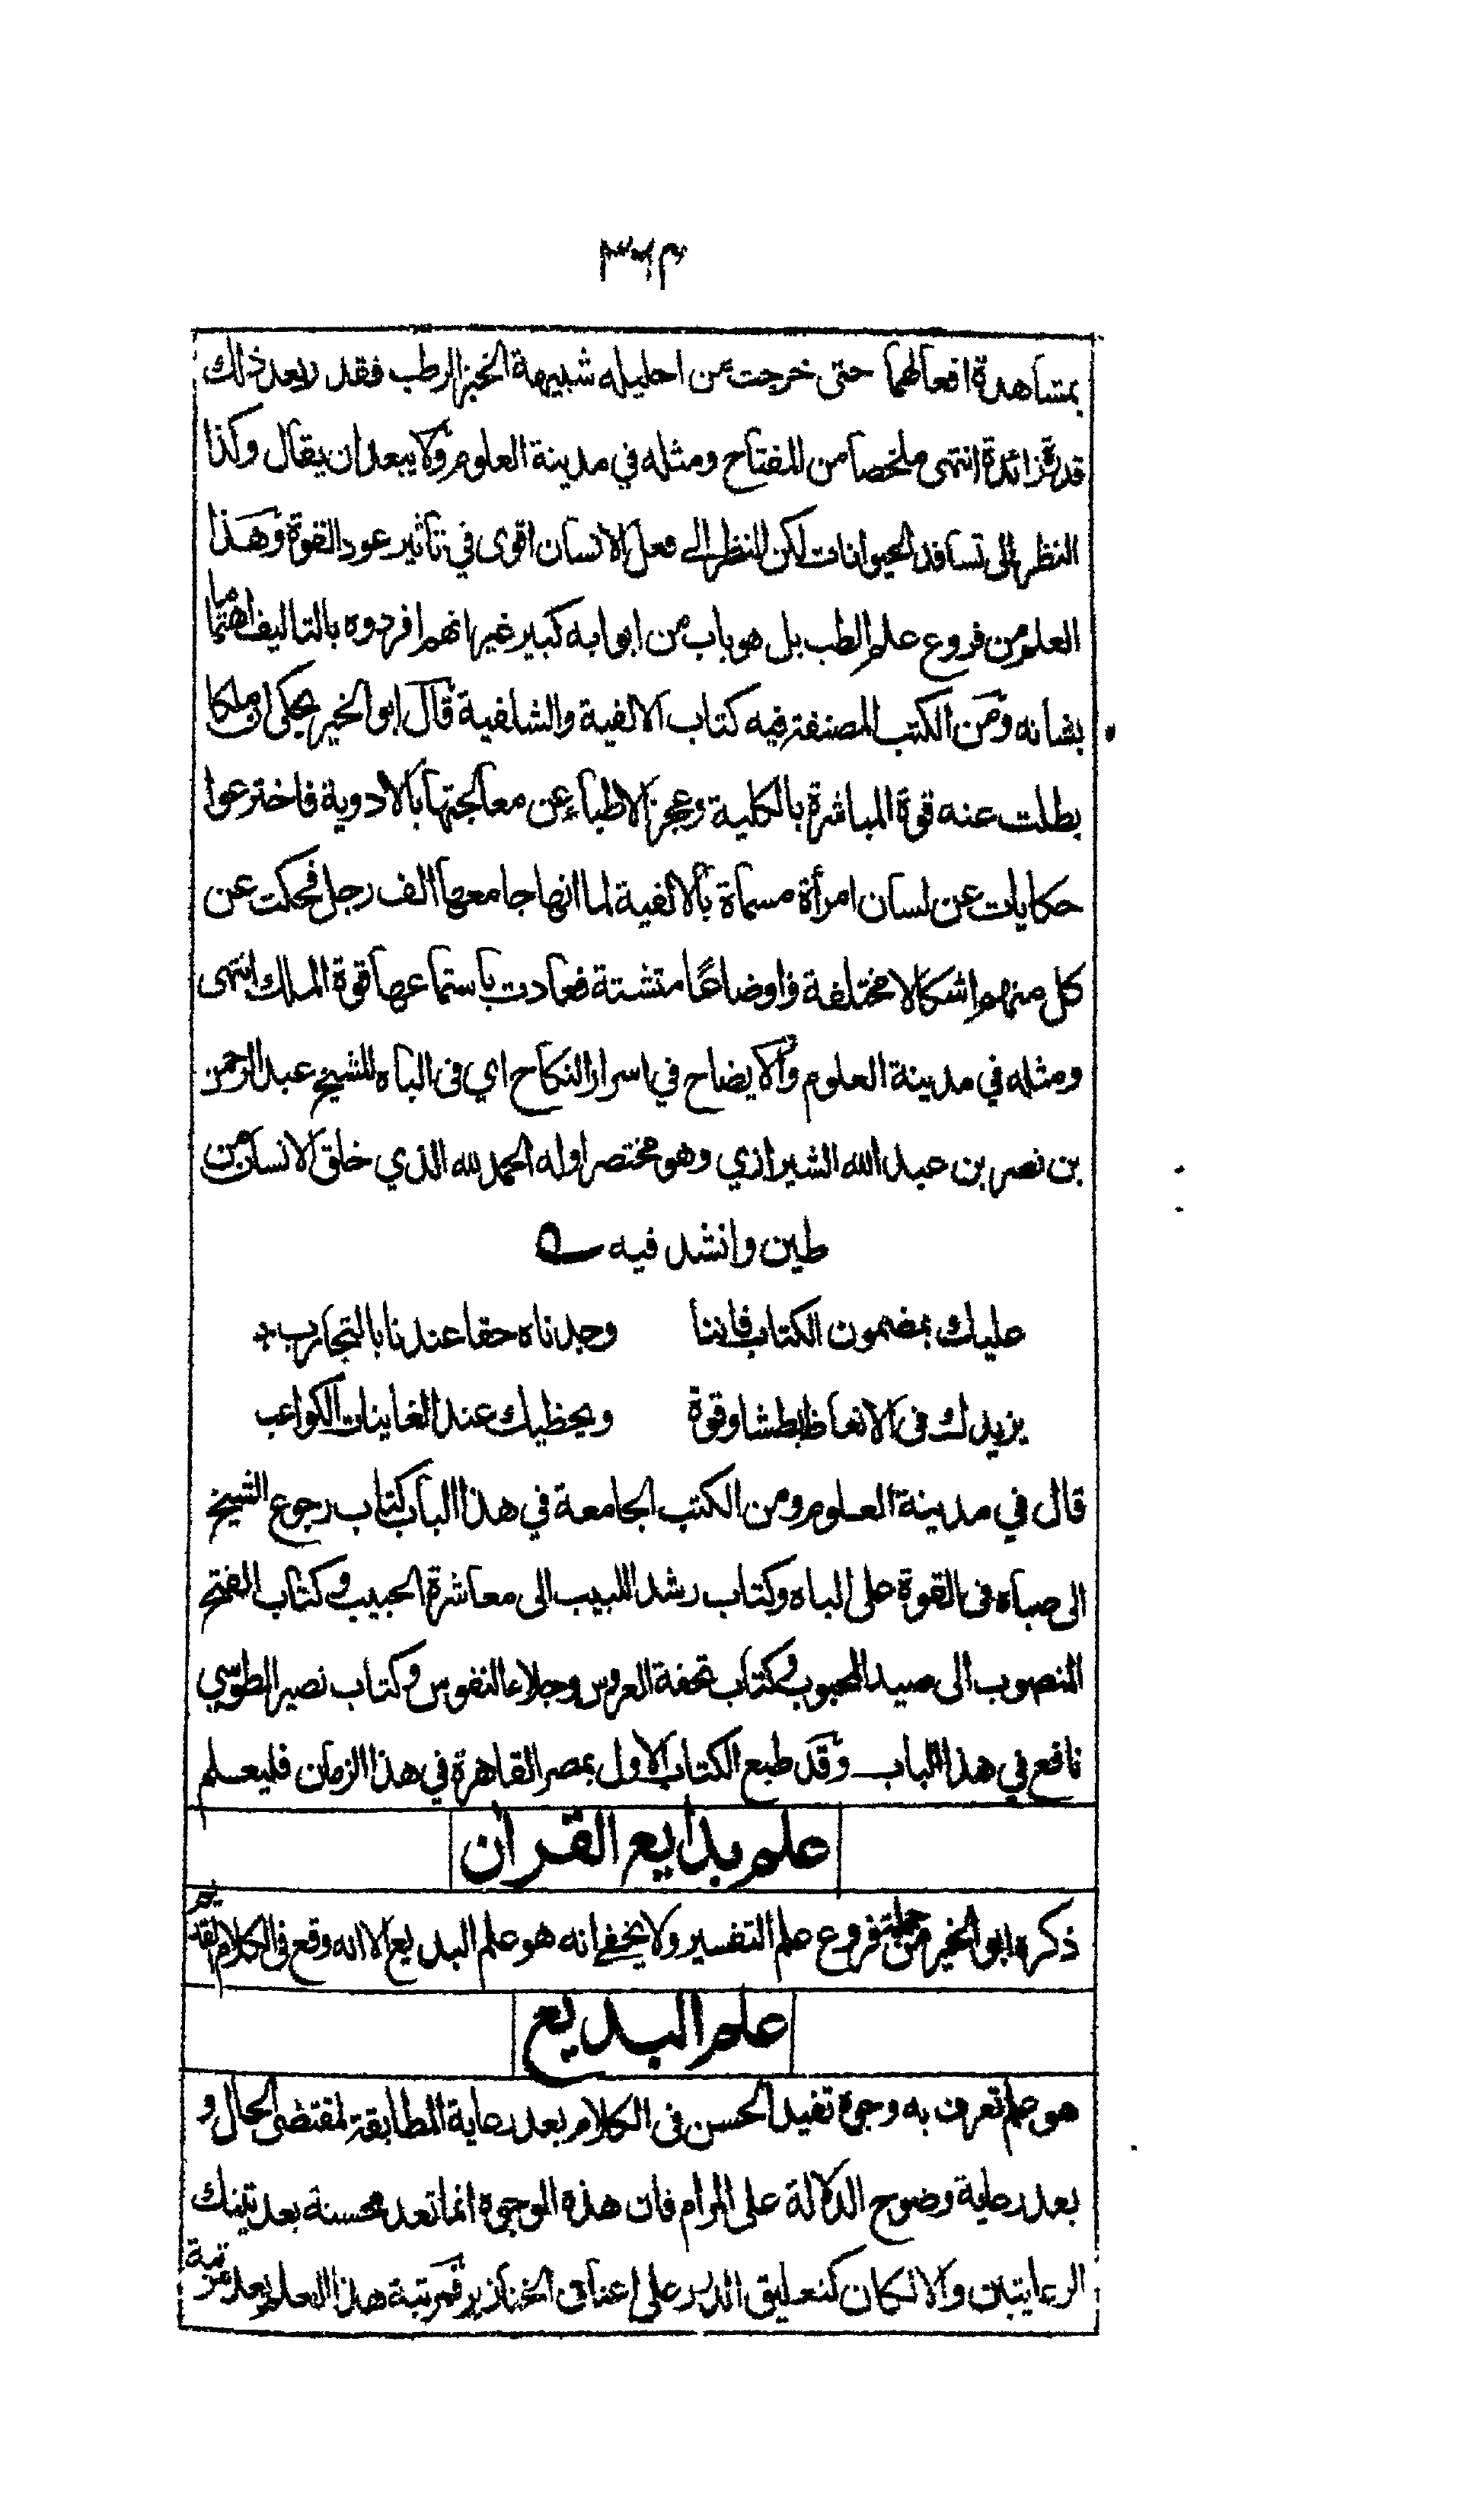 ٣٦٣
بمشاهدة افعالهما حتى خرجت من احليله شبيهة الخبز الرطب فقدر بعد ذلك
قدرة زائدة انتهى ملخصا من المفتاح ومثله في مدينة العلوم ولا يبعد ان يقال وكذا
النظر الى تسافد الحيوانات لكن النظر الى فعل الانسان اقوى في تاثير عود القوة وهذا
العلم من فروع علم الطب بل هو باب من ابوابه كبير غير انهم افردوه بالتاليف اهتماما
بشانه ومن الكتب المصنفة فيه كتاب الالفية والشلفية قال ابو الخير يحكى ان ملكا
بطلت عنه قوة المباشرة بالكلية وعجز الاطباء عن معالجتها بالادوية فاخترعوا
حكايات عن لسان امرأة مسماة بالالفية لما انها جامعها الف رجل فحكت عن
كل منهم اشكالا مختلفة واوضاعًا متشتة فعادت باستماعها قوة الملك انتهى
ومثله في مدينة العلوم والايضاح في اسرار النكاح اي في الباه للشيخ عبد الرحمن
بن نصر بن عبد الله الشيرازي وهو مختصر اوله الحمد لله الذي خلق الانسان من
طين وانشد فيه ه
عليك بمضمون الكتاب فاننا وجدناه حقا عندنا بالتجارب
يزيدك في الانعاظ بطشا وقوة ويحظيك عند الغاينات الكواعب
قال في مدينة العلوم ومن الكتب الجامعة في هذا الباب كتاب رجوع الشيخ
الى صباه في القوة على الباه وكتاب رشد اللبيب الى معاشرة الحبيب وكتاب الفتح
المنصوب الى صيد المحبوب وكتاب تحفة العروس وجلاء النفوس وكتاب نصير الطوسي
نافع في هذا الباب وقد طبع الكتاب الاول بمصر القاهرة في هذا الزمان فليعلم
علم بدايع القران
ذكره ابو الخير من جملة فروع علم التفسير ولا يخفى انه هو علم البديع الا انه وقع في الكلام القديم
علم البديع
هو علم تعرف به وجوه تفيد الحسن في الكلام بعد رعاية المطابقة لمقتضى الحال و
بعد رعاية وضوح الدلالة على المرام فان هذه الوجوه انما تعد محسنة بعد تينك
الرعايتين والا لكان كتعليق الدرر على اعناق الخنازير فمرتبة هذا العلم بعد مرتبة